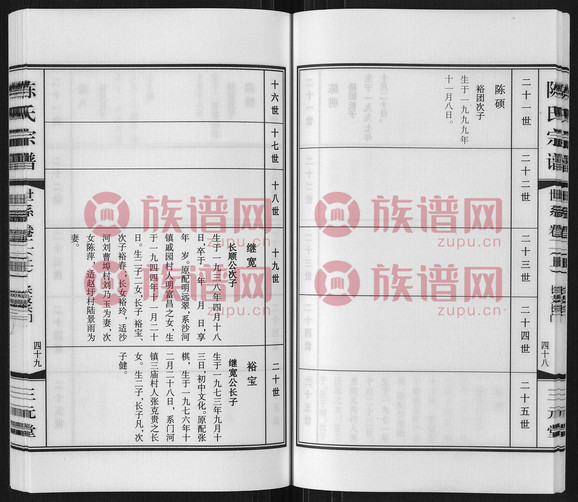 陈氏宗谱
四十八
三元堂
二十一世
二十二世
二十三世
二十四世
二十五世
陈硕
裕团次子
生于一九九九年
十一月八日。
十六世
十七世
十八世
十九世
二十世
继宽
长顺公次子
生于一九三八年四月十八
日，卒于 年 月 日，享
年 岁。原配明远翠，系沙河
镇戚园村人明富昌之女，生
于一九四四年十一月二十
日。生二子二女，长子 裕宝、
次子裕春，长女裕玲，适沙
河刘曹埠村刘乃玉为妻，次
女陈萍，适赵圩村陆景雨为
妻。
裕宝
继宽公长子
生于一九七三年九月十
三日，初中文化。原配张
棋，生于一九七六年十
二月二十八日，系门河
镇三庙村人张克贵之长
女。生二子，长子凡，次
子健。
陈氏宗谱
四十九
三元堂
族谱网
zupu.cn
族谱网
zupu.cn
族谱网
zupu.cn
族谱网
zupu.cn